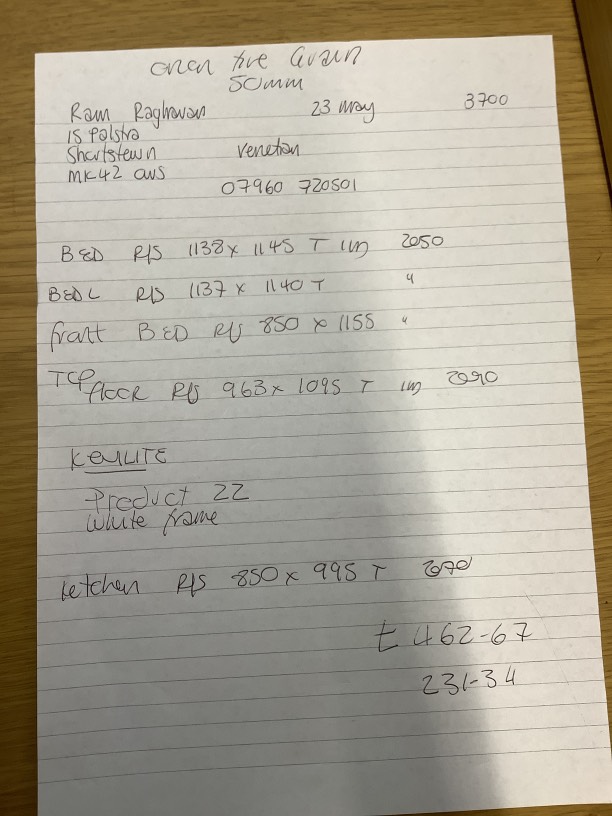 fire Grain
50mm
Ram Raghavan 23 May 3700
15 Palstra
Shortstown Venetian
MK42
07960 720501
BED R/S 1138 x 1145 T 1m 2050
BED L R/S 1137 x 1140 T "
front BED R/S 850 x 1155 "
TOP
flooR R/S 963 x 1095 T 1m 2090
KeyLITE
Product 22
white frame
ketchen R/S 850 x 995 T 2070
t 462-67
231-34